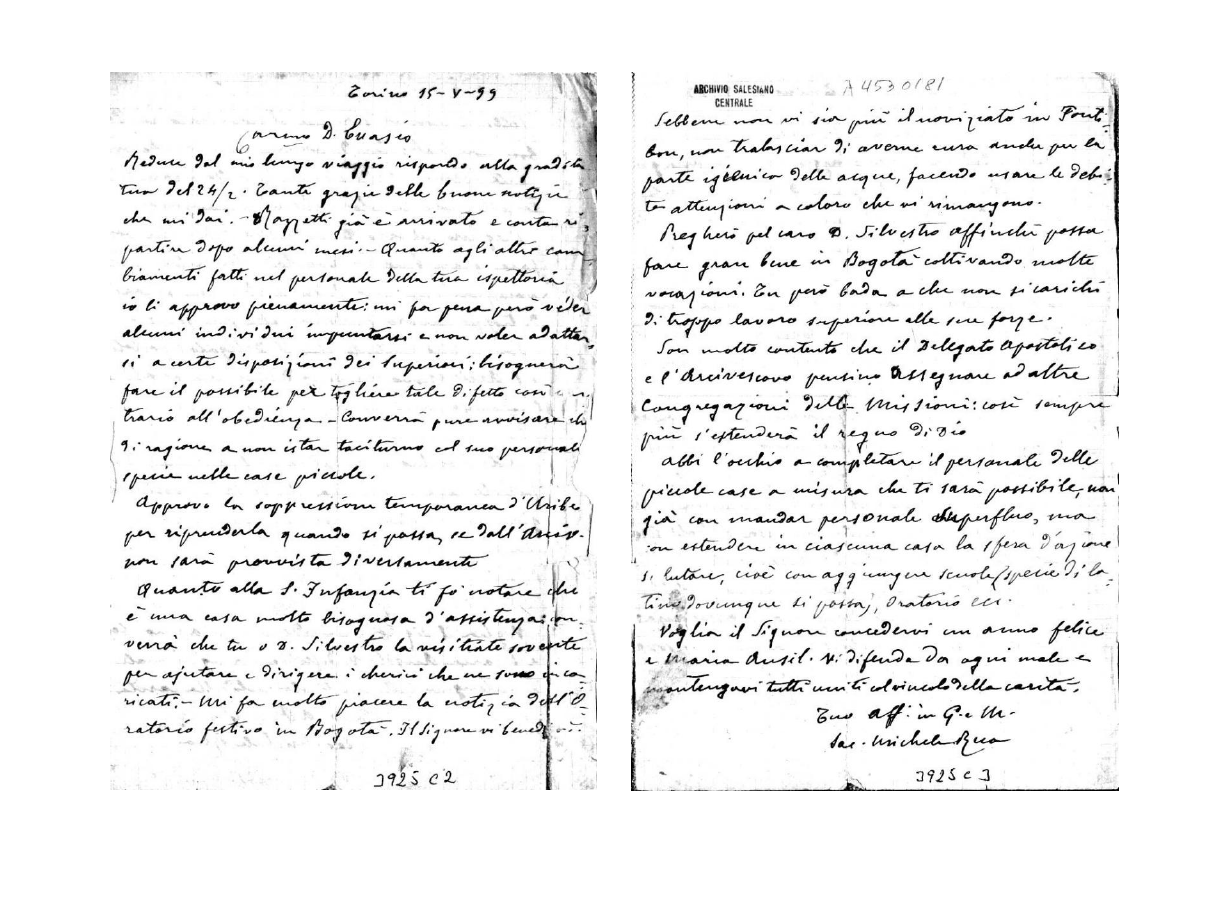 Torino 15-V-99
Carmo D. Evasio
Reduce dal mio lungo viaggio rispondo alla gradita
tua del 24/2. Tante grazie delle buone notizie
che mi dai. - Razzetti già è arrivato e conta ri,
partire dopo alcuni mesi. - Quanto agli altri cam
biamenti fatti nel personale della tua ispettoria
io li approvo pienamente: mi fa pena però veder
alcuni individui impuntarsi e non voler adattar,
si a certe disposizioni dei Superiori; bisognerà
fare il possibile per togliere tale difetto così
trario all'obedienza - Converrà pure avvisare ch
di ragione a non istar taciturno col suo personale
specie nelle case piccole.
Approvo la soppressione temporanea d'Uribe
per riprenderla quando si possa, se dall'Arciv.
non sarà provvista diversamente
Quanto alla S. Infanzia ti fo notare che
è una casa molto bisognosa d'assistenza: con,
verrà che tu o D. Silvestro la visitiate sovente
per ajutare e dirigere i chierici che ne sono inca
ricati. - Mi fa molto piacere la notizia dell'O,
ratorio festivo in Bogotà. Il Signore vi bened
3925 C 2
ARCHIVIO SALESIANO
CENTRALE
A4530181
Sebbene non vi sia più il noviziato in Font-
bon, non tralasciar di averne cura anche per la
parte igienica delle acque, facendo usare le debi-
te attenzioni a coloro che vi rimangono.
Pregherò pel caro D. Silvestro affinchè possa
fare gran bene in Bogotà coltivando molte
vocazioni. Tu però bada a che non si carichi
di troppo lavoro superiore alle sue forze.
Son molto contento che il Delegato Apostolico
e l'Arcivescovo pensino assegnare ad altre
Congregazioni delle Missioni: così sempre
più s'estenderà il regno di Dio
Abbi l'occhio a completare il personale delle
piccole case a misura che ti sarà possibile, non
già con mandar personale superfluo, ma
con estendere in ciascuna casa la sfera d'azione
salutare, cioè con aggiungere scuole (specie di la-
tino dovunque si possa), Oratorio ecc.
Voglia il Signore concedervi un anno felice
e Maria Ausil. vi difenda da ogni male e
mantengavi tutti uniti col vincolo della carità.
Tuo aff. in G. e M.
Sac. Michele Rua
3925 C 3